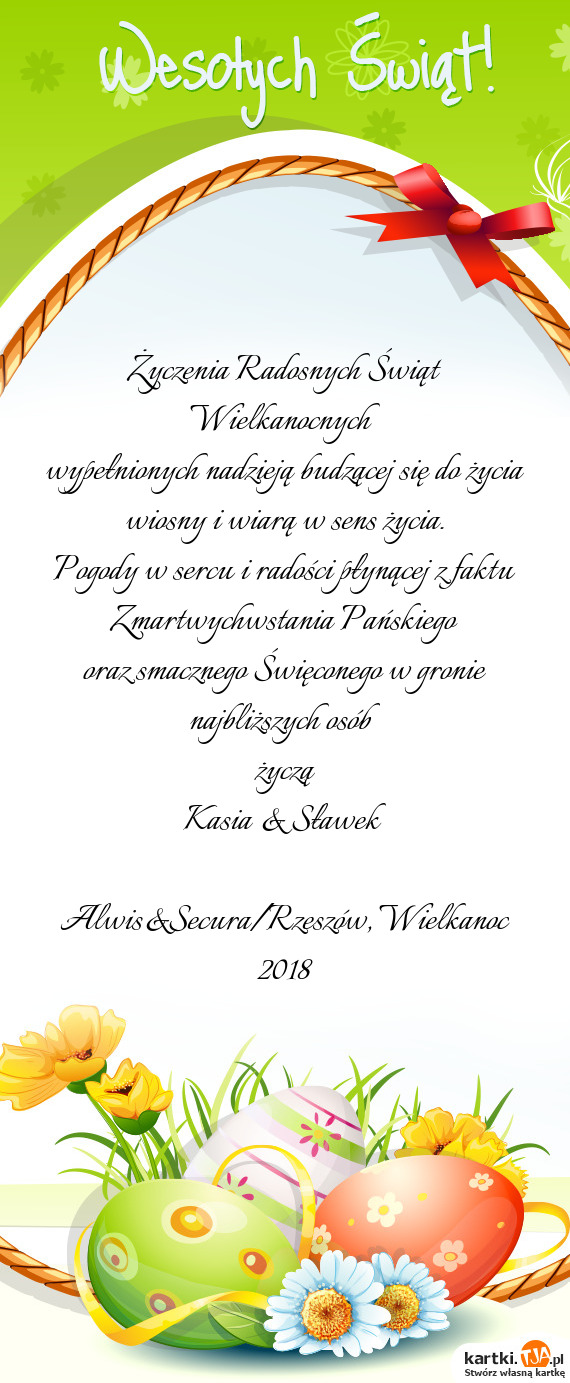 Wesołych Świąt!
Życzenia Radosnych Świąt
Wielkanocnych
wypełnionych nadzieją budzącej się do życia
wiosny i wiarą w sens życia.
Pogody w sercu i radości płynącej z faktu
Zmartwychwstania Pańskiego
oraz smacznego Święconego w gronie
najbliższych osób
życzą
Kasia & Sławek
Alwis&Secura/Rzeszów, Wielkanoc
2018
kartki.TJA.pl
Stwórz własną kartkę